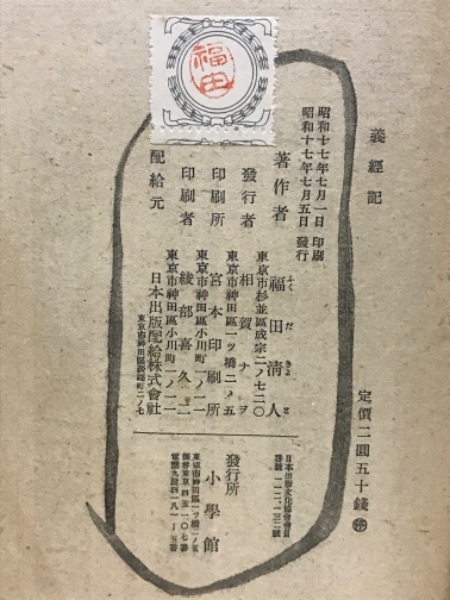 義經記
定價二圓五十錢㊞
昭和十七年七月一日 印刷
昭和十七年七月五日 發行
東京市杉並區成宗二ノ七二〇
著作者 福田淸人
ふくだきよと
東京市神田區一ツ橋二ノ五
發行者 相賀ナヲ
東京市神田區小川町一ノ一一
印刷所 宮本印刷所
東京市神田區小川町一ノ一一
印刷者 綾部喜久二
配給元 日本出版配給株式會社
東京市神田區淡路町二ノ七
日本出版文化協會會員
發行所 小學館
東京市神田區一ツ橋二ノ五
福田